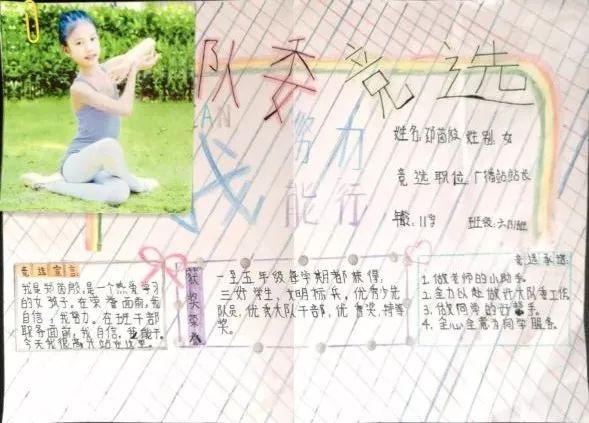 队委竞选
我努力
能行
姓名:郑茵殷 性别:女
竞选职位:广播站站长
年龄:11岁 班级:六
竞选宣言
我是郑茵殷,是一个热爱学习
的女孩子。在荣誉面前,我
自信,我努力。在班干部
职务面前,我自信。我能干。
今天我很高兴站在这里。
获奖荣誉
一至五年级每学期都获得,
三好学生,文明标兵。优秀少先
队员,优秀大队干部,优 奖,特等
奖。
竞选承诺
1.做老师的小助手。
2.全力以赴做好大队委工作。
3.做同学的好 手。
4.全心全意为同学服务。